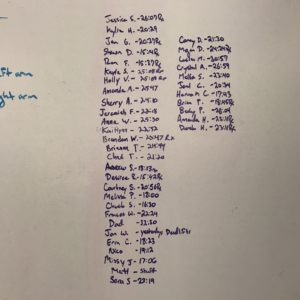 ft arm
ght arm
Jessica S. - 26:07Rx
Kylin H. - 20:29
Jen G. - 20:37Rx
Shawn D. - 15:42Rx
Ron F. - 15:37Rx
Kayla S. - 25:08Rx
Holly V. - 25:09Rx
Amanda A. - 25:47
Sherry A. - 25:10
Jeremiah F. - 22:15
Anne W. - 25:30
Kaitlynn - 22:32
Brandon W. - 25:47 Rx
Brienne T. - 25:44
Chad T. - 21:20
Andrew S. - 18:13Rx
Desiree R. - 15:42Rx
Courtney S. - 20:56Rx
Melissa P. - 18:00
Chuck S. - 16:30
Frances W. - 22:24
Dad - 22:50
Jon W. - yesterday's
Erin C. - 18:23
Rico - 19:12
Missy J - 17:06
Matt - Stuff
Sara S - 22:19
Corey D. - 21:30
Megan D. - 24:24Rx
M. - 20:57
Crystal A. - 26:59
S. - 23:40
Joni C. - 20:34
Hannah C - 17:43
Brian P. - 18:45Rx
Becky P. - 26:09
Amanda H. - 23:18Rx
Derek H. - 23:19Rx